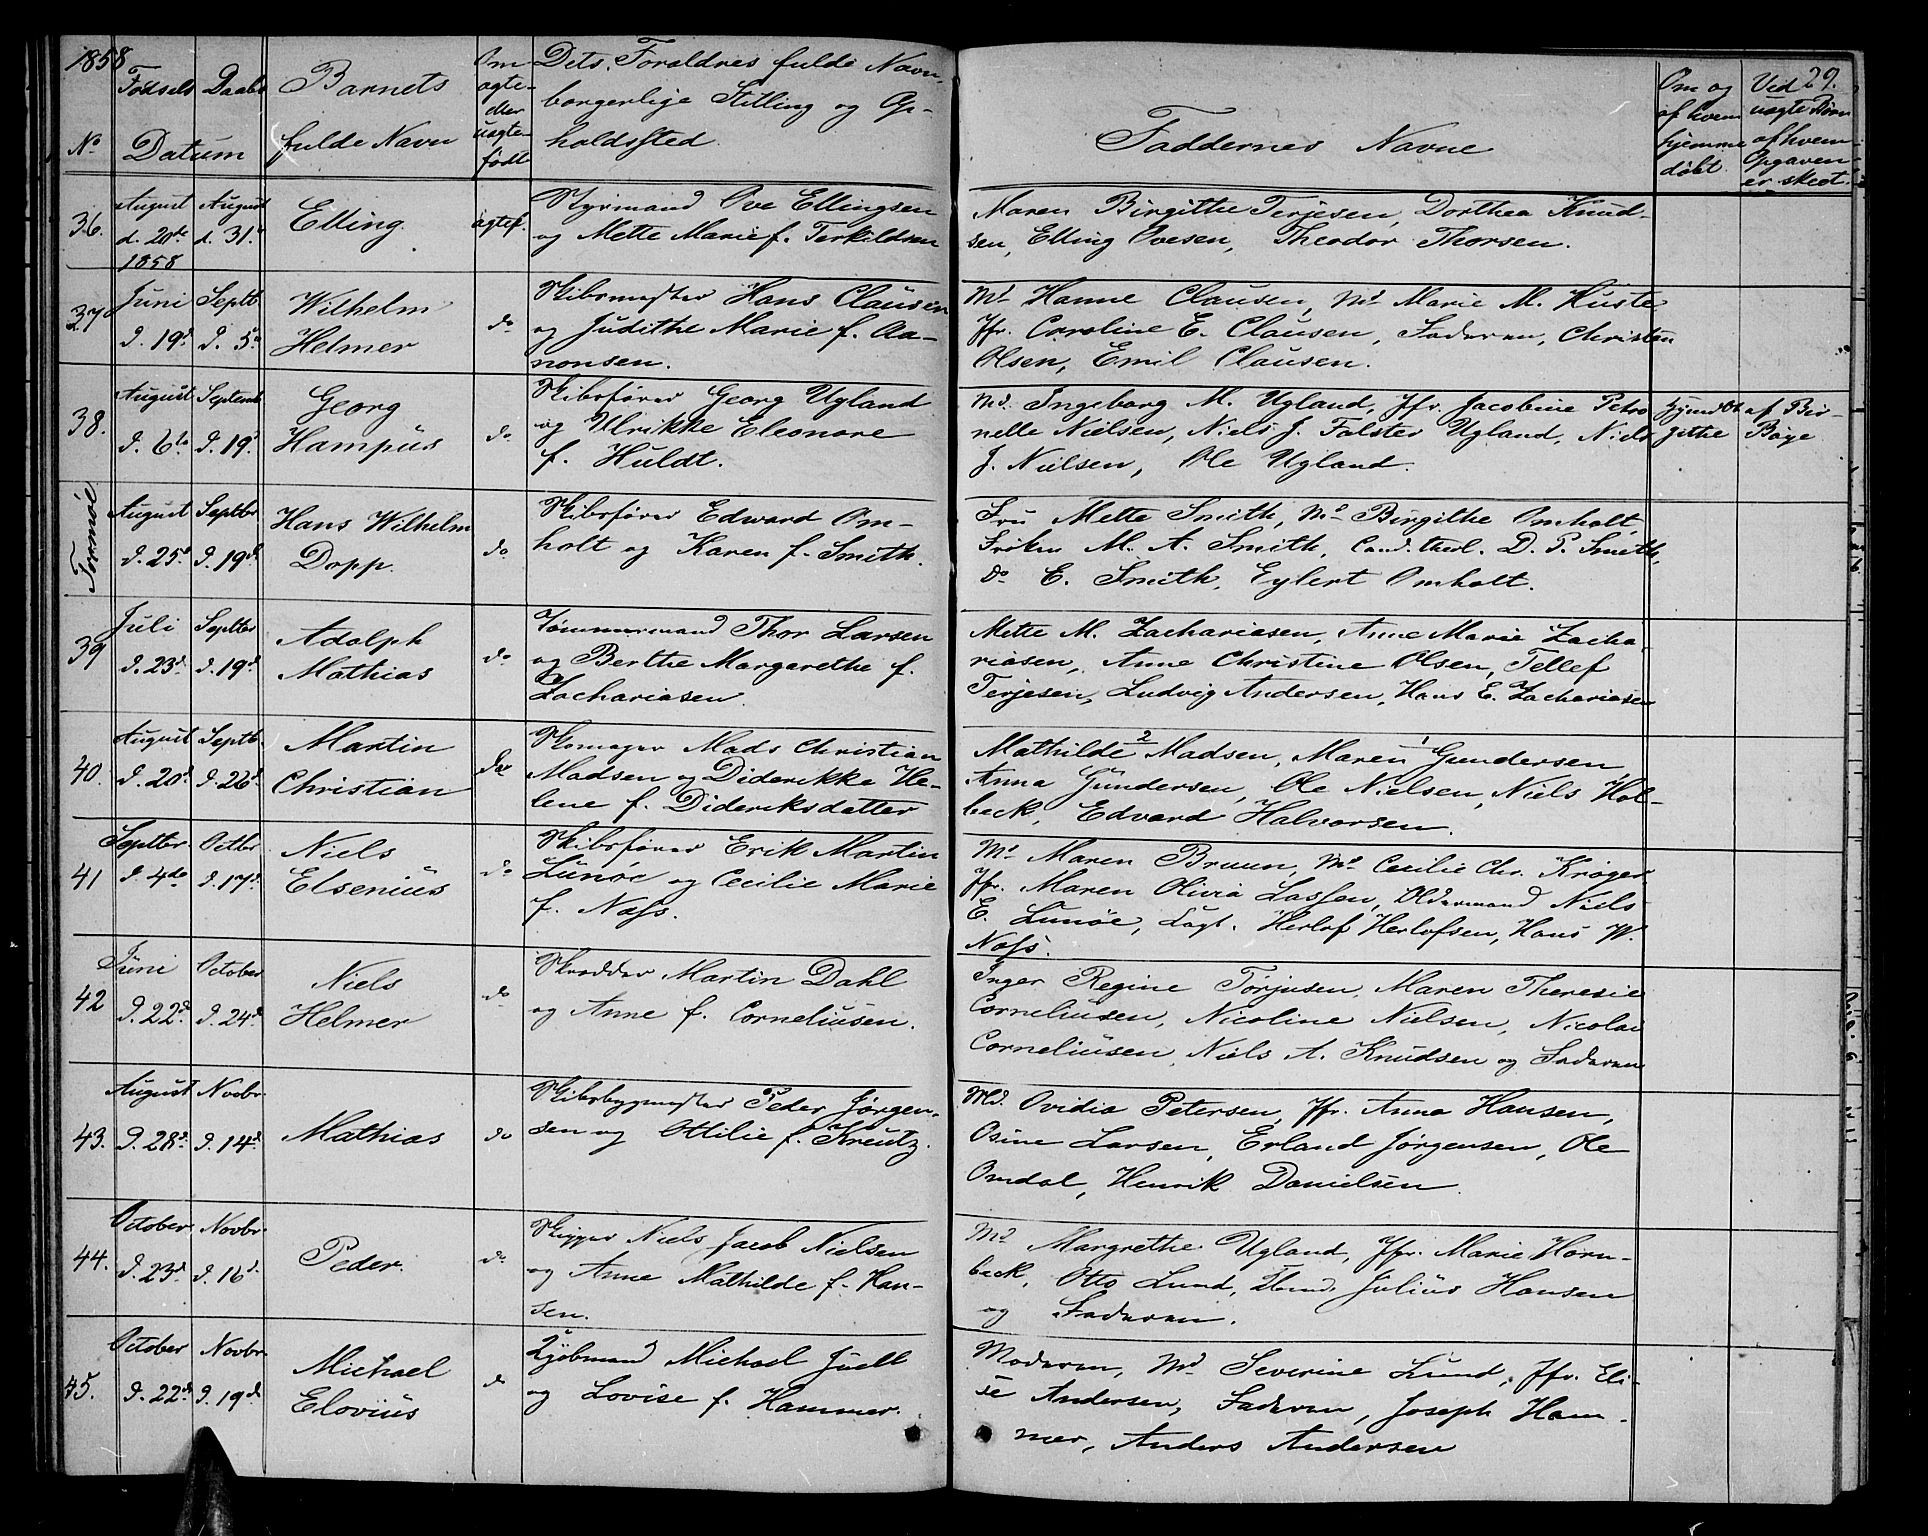 1858
29.
Fødsels Daabs Barnets
Om ægte eller uægte født
Dets Forældres fulde Navn,
borgerlige Stilling og Op-
holdssted.
No Datum fulde Navn
Faddernes Navne
Om og af hvem hjemme døbt
Ved uægte Børn af hvem Opgaven er skeet.
36. August d. 20de 1858 August d. 31. Elling. ægtef.
Styrmand Ove Ellingsen
og Mette Marie f. Terkildsen
Maren Birgitthe Terjesen, Dorthea Knud-
sen, Elling Ovesen, Theodor Thorsen.
37 Juni d. 19d Septb. d. 5te Wilhelm Helmer do
Skibsmægler Hans Clausen
og Judithe Marie f. Aa-
nonsen.
Md. Hanne Clausen, Md. Marie M. Huste
Jfr. Caroline E. Clausen, Faderen, Christen
Olsen, Emil Clausen.
38. August d. 6te Septemb. d. 19d Georg Hampus do
Skibsfører Georg Ugland
og Ulrikke Eleonore
f. Huldt.
Md. Ingeborg M. Ugland, Jfr. Jacobine Petro
nelle Nielsen, Niels J. Falster Ugland, Niels
J. Nielsen, Ole Ugland.
hjemdbt af Bir-
githe Bøye
Tormøe August d. 25d Septbr d. 19d Hans Wilhelm Dopp. do
Skibsfører Edward Om-
holt og Karen f. Smith.
Fru Mette Smith, Md. Birgithe Omholt,
Frøken M. A. Smith, Cand. theol. D. P. Smith,
do E. Smith, Eylert Omholt.
39 Juli d. 23d Septbr d. 19d Adolph Mathias do
Tømmermand Thor Larsen
og Berthe Margarethe f.
Zachariasen.
Mette M. Zachariasen, Anne Marie Zacha-
riasen, Anne Christine Olsen, Tellef
Terjesen, Ludvig Andersen, Hans E. Zachariasen
40. August d. 20d Septb. d. 26d Martin Christian do
Skomager Mads Christian
Madsen og Diderikke He-
lene f. Dideriksdatter
Mathilde 2 Madsen, Maren 1 Gundersen,
Anna Gundersen, Ole Nielsen, Niels Hol-
beck, Edvard Halvorsen.
41 Septbr d. 4de Octbr d. 17d Niels Elsenius do
Skibsfører Erik Martin
Lunøe og Cecilie Marie
f. Næss.
Md. Maren Bruun, Md. Cecilie Chr. Krøger
Jfr. Maren Olivia Lassen, Oldermand Niels
E. Lunøe, Capt. Herlof Herlofsen, Hans W.
Næss.
42 Juni d. 22d October d. 24d Niels Helmer do
Skrædder Martin Dahl
og Anne f. Corneliusen.
Inger Regine Torjusen, Maren Theresie
Corneliusen, Nicoline Nielsen, Nicolai
Corneliusen, Niels A. Knudsen og Faderen
43. August d. 28d Novbr. d. 14d Mathias do
Skibsbygmester Peder Jørgen-
sen og Ottilie f. Kreutz.
Md. Ovidia Petersen, Jfr. Anna Hansen,
Osine Larsen, Erland Jørgensen, Ole
Omdal, Henrik Danielsen.
44. October d. 23d Novbr. d. 16d Peder. do
Skipper Niels Jacob Nielsen
og Anne Mathilde f. Han-
sen.
Md. Margrethe Ugland, Jfr. Marie Horn-
beck, Otto Lund, Julius Hansen
og Faderen.
45. October d. 22d Novbr. d. 19d Michael Elovius do
Kjøbmand Michael Juell
og Lovise f. Hammer.
Moderen, Md. Severine Lund, Jfr. Eli-
se Andersen, Faderen, Joseph Ham-
mer, Anders Andersen